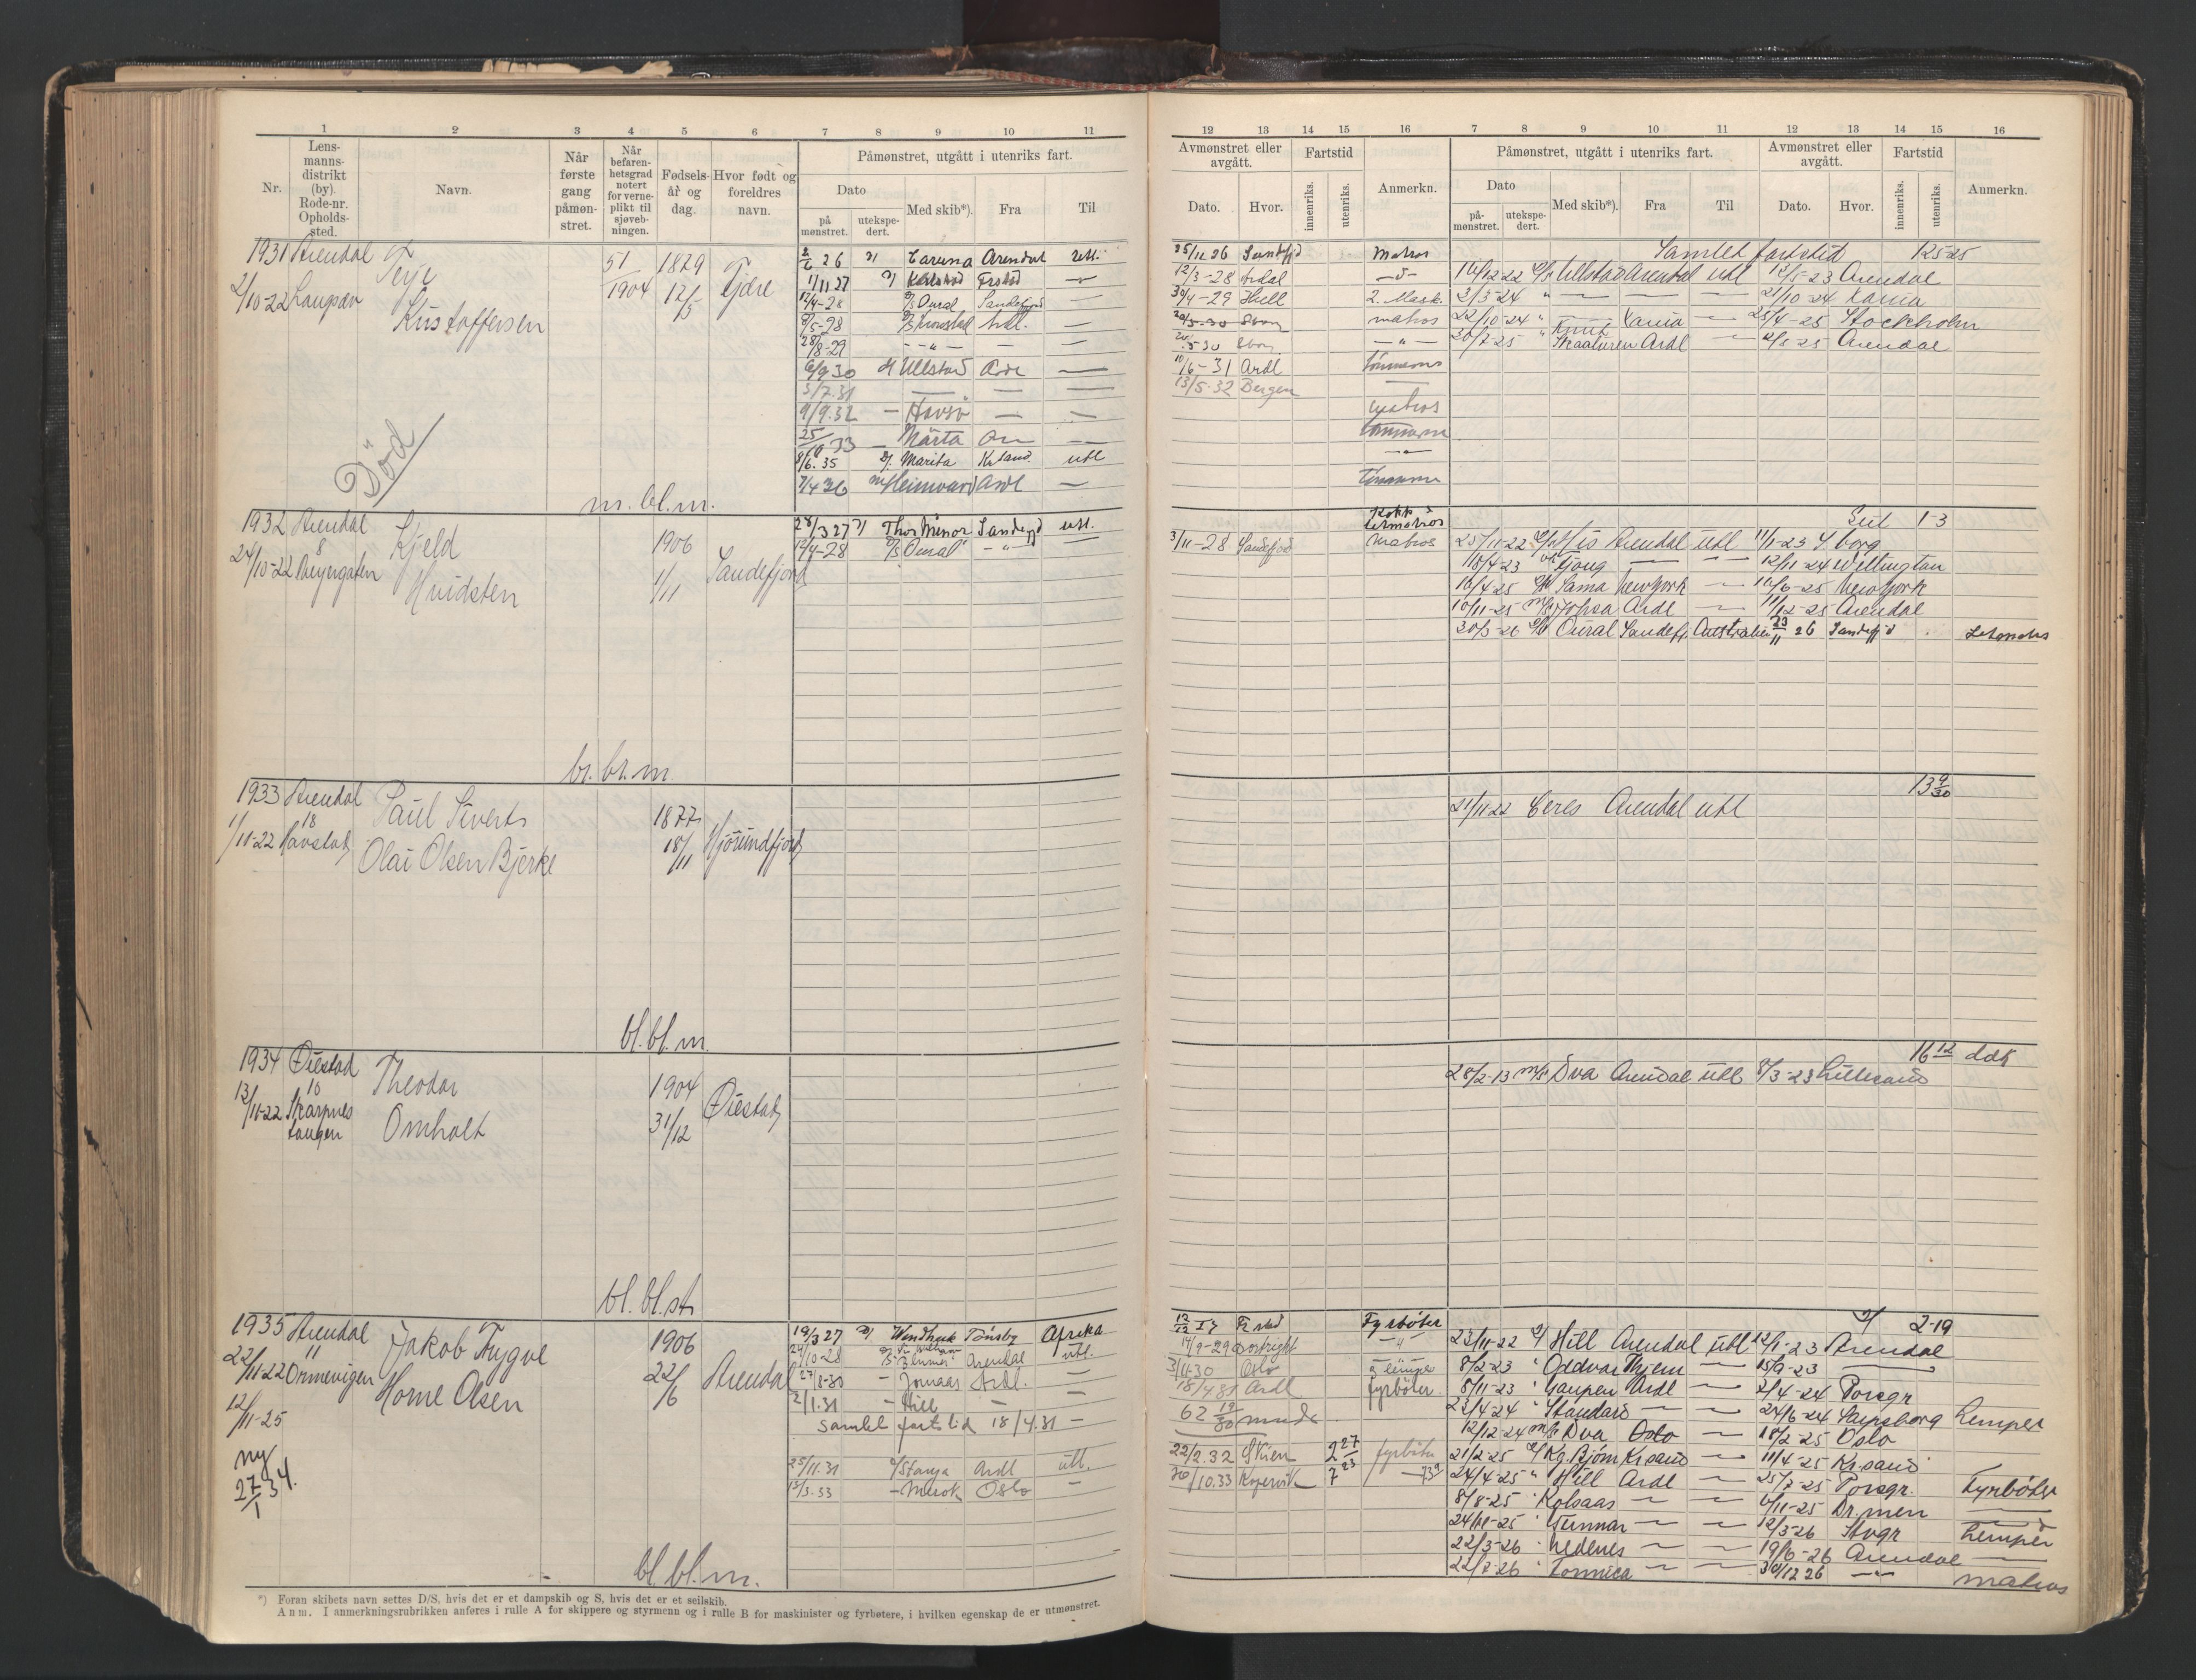 1 2 3 4 5 6 7 8 9 10 11
Nr.
Lens-
manns-
distrikt
(by).
Rode-nr.
Opholds-
sted.
Navn.
Når
første
gang
påmøn-
stret.
Når
befaren-
hetsgrad
notert
for verne-
plikt til
sjøveb-
ningen.
Fødsels-
år og
dag.
Hvor født og
foreldres
navn.
Påmønstret, utgått i utenriks fart.
Dato
på
mønstret.
utekspe-
dert.
Med skib*).
Fra
Til
1931 Arendal Terje 51 1879
2/10-22 Langsæv Kristoffersen 1904 12/5 Tjøre
2/6 26 Caruna Arendal utl.
1/11 27 Frstad —
12/4-28 D/S Oural Sandefjord
9/5-28 Ardl. —
28/8-29 — " — — —
6/9 30 Ullstad Are —
3/7.31 — — —
9/9.32 — Havsö — —
25/10 33 — Märta Are —
8/6.35 Marita Kr.sand. utl
7/4 36 Heimvard Ardl —
Død
m. bl. m.
1932 Arendal Kjeld 1906
8
24/10-22 Hvidsten 1/11 Sandefjord
28/3 27 Thor Minor Sandefjd utl.
12/4-28 D/S Oural — " —
bl. bl. m.
1933 Arendal Paul Siverts 1877
18
1/11-22 Havstad Olai Olsen Bjerke 18/11 Hjörundfjord
bl. bl. m.
1934 Øiestad Theodor 1904
10
13/11-22 Skarpnes Omholt 31/12 Øiestad
tangen
bl. bl. st.
1935 Arendal Jakob Trygve 1906
11
22/11-22 Ormevigen Horne Olsen 22/6 Arendal
12/11-25
ny
27/1 34.
19/3 27 Tönsbg Afrika
10-28 Arendal utl.
27/8-30 — Jomaas Ardl. —
2/1.31 — Hill — —
samlet fartstid 18/4.31 —
25/11.31 Ardl utl.
15/3.33 — Merok Oslo —
bl. bl. m.
*) Foran skibets navn settes D/S, hvis det er et dampskib og S, hvis det er et seilskib.
Anm. I anmerkningsrubrikken anføres i rulle A for skippere og styrmenn og i rulle B for maskinister og fyrbøtere, i hvilken egenskap de er utmønstret.
12 13 14 15 16 7 8 9 10 11 12 13 14 15 16
Avmønstret eller
avgått.
Fartstid
Dato.
Hvor.
innenriks.
utenriks.
Anmerkn.
Påmønstret, utgått i utenriks fart.
Dato
på-
mønstret.
utekspe-
dert.
Med skib*).
Fra
Til
Avmønstret eller
avgått.
Fartstid
Dato.
Hvor.
innenriks.
utenriks.
Anmerkn.
25/11 26 Sandefjd Matros Samlet fartstid 125-25
12/3-28 Ardal — " — 14/12-22 Ullstad Arendal utl 12/5-23 Arendal
30/4-29 Hull 2. Mask. 2/3-24 " — — — 21/10-24 Xania
20/5-30 Sborg matros 22/10-24 " — Xania — 25/4-25 Stockholm
5 30 Sborg — " — 30/7-25 " Knut Skaaluren Ardl — 2/8-25 Arendal
10/6-31 Ardl tömmerm
13/5.32 Bergen
matros
tömmerm
— " —
Tömmerm
Seil 1-3
Kokk
letmatros
3/11-28 Sandefjord Matros 25/11-22 Arendal utl 11/1-23 S.borg
18/4-23 Tjoug — — 12/11-24 Wellington
16/4-25 Sama NewYork — 16/6-25 NewYork
10/11-25 Ardl — 11/12-25 Arendal
30/3-26 Oural Sandefj. Australien 23/11 26 Sandefjd Letmatros
13 9/30
21/11-22 Ceres Arendal utl
16 12 dæk
28/2-13 M/S Dva Arendal utl 8/3-23 Lillesand
12/12 27 Fr.stad Fyrbøter 2-19
14/9-29 — " — 23/11-22 Hill Arendal utl 12/1-23 Arendal
3/11 30 Oslo Lemper 8/2-23 " Oddvar Hjem — 15/9-23 —
18/4 31 Ardl fyrbøter. 8/11-23 " Gaupen Ardl — 2/4-24 Porsgr
62 19/30 mndr 23/4-24 " Standard — — 24/6-24 Sarpsborg Lemper
12/12-24 M/S Dva Oslo — 18/2-25 Oslo
22/2.32 Skien 2 27 fyrbøter 21/2-25 Kg. Bjørn Kr.sand — 11/4-25 Kr.sand —
30/10.33 Kopervik 7 23 24/4-25 " Hill Ardl — 25/7-25 Porsgr. Fyrbøter
8/8-25 " Kolsaas — — 6/11-25 Dr.men —
24/11-25 " Gunnar — — 12/3-26 Stvgr Lemper
22/3-26 " Nedenes — — 19/6-26 Arendal —
22/7-26 " Tormica — — 30/12 26 — " — Matros